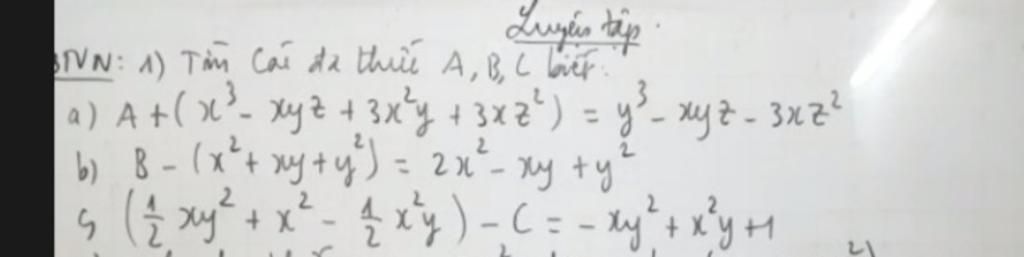 Luyện tập.
BTVN: 1) Tìm các đa thức A, B, C biết:
a) A + (x³ - xyz + 3x²y + 3xz²) = y³ - xyz - 3xz²
b) B - (x² + xy + y²) = 2x² - xy + y²
c) (1/2 xy² + x² - 1/2 x²y) - C = - xy² + x²y + 1
2)